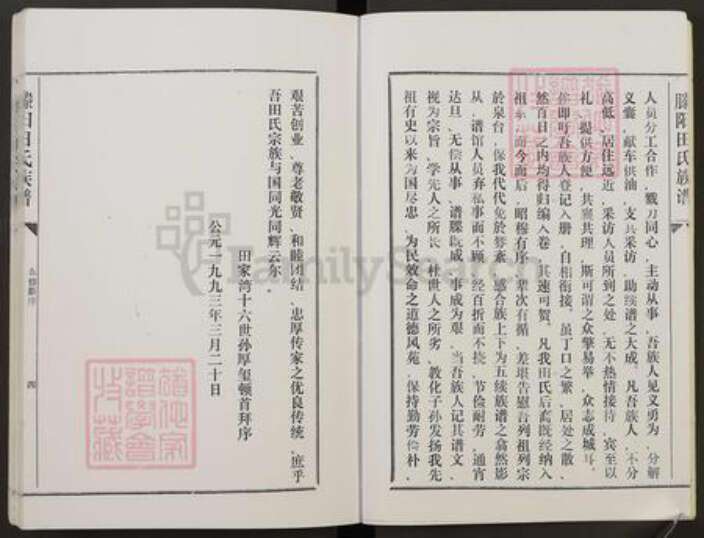 滕阳田氏族谱
人员分工合作、戮力同心、主动从事、吾族人见义勇为、分解
义囊、献车供油、支其采访、助续谱之大成。凡吾族人、不分
高低、居住远近、采访人员所到之处、无不热情接待、宾至以
礼、提供方便、共襄其理、斯可谓之众擎易举、众志成城斗。
即吁吾族人登记入册、自相衔接。虽丁口之繁、居处之散、
然百日之内均得归编入卷、其速可贺。凡我田氏后裔既经纳入
祖系、而今而后、昭穆有序、辈次有循、差堪告慰吾列祖列宗
於泉台、保我代代免於紊紊、感合族上下为五续族谱之翕然影
从、谱馆人员弃私事而不顾、经百折而不挠、节俭耐劳、通宵
达旦、无偿从事、谱牒既成、事成为艰、当吾族人记其谱文、
视为宗旨、学先人之所长、杜世人之所劣、教化子孙发扬我先
祖有史以来为国尽忠、为民效命之道德风范、保持勤劳俭朴、
艰苦创业、尊老敬贤、和睦团结、忠厚传家之优良传统、庶乎
吾田氏宗族与国同光同辉云尔。
田家湾十六世孙厚玺顿首拜序
公元一九九三年三月二十日
滕阳田氏族谱
五修谱序
四
FamilySearch